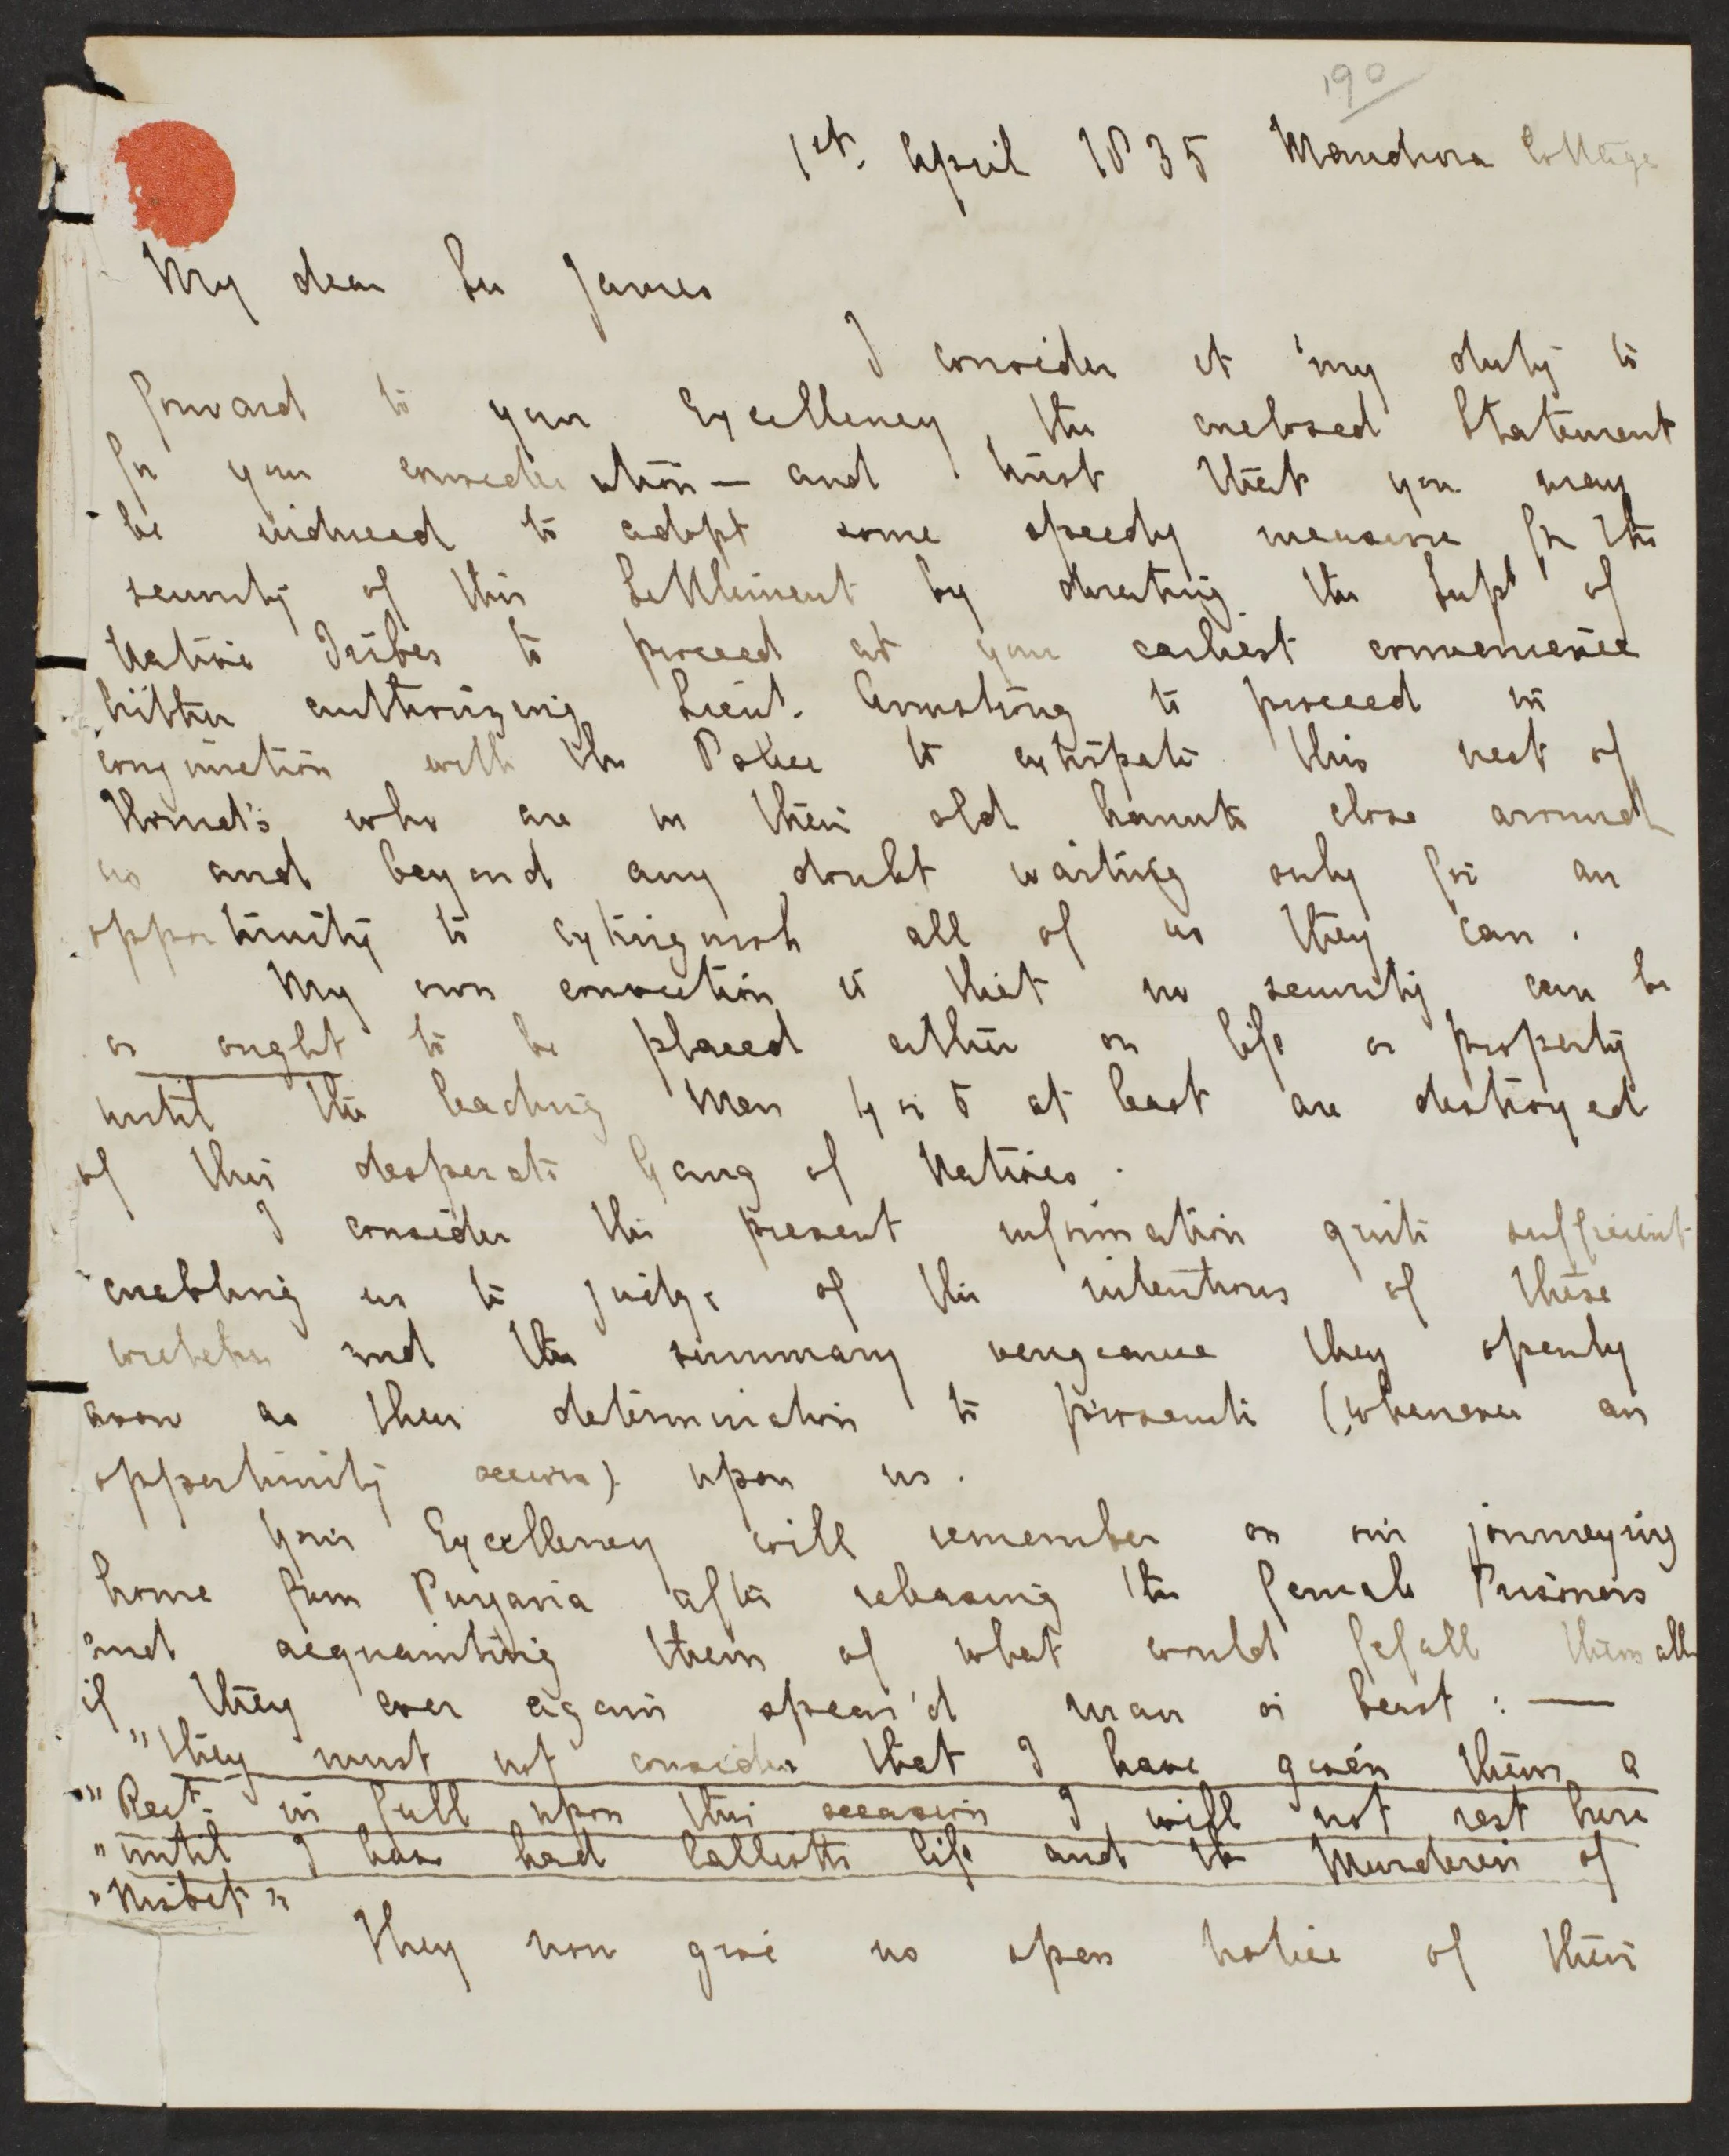 190
1st. April 1835 Mandura Cottage
My dear Sir James
I consider it my duty to
forward to your Excellency, the enclosed Statement
for your consideration — and trust that you may
be induced to adopt some speedy measure for the
security of this Settlement by directing the Supt of
Native Tribes to proceed at your earliest convenience
hither authorizing Lieut. Armstrong to proceed in
conjunction with the Police to extirpate this nest of
Hornet's who are in their old haunts close around
us and beyond any doubt waiting only for an
opportunity to extinguish all of us they can.
My own conviction is that no security can be
or ought to be placed either on life or property
until the leading Men 4 or 5 at least are destroyed
of this desperate Gang of Natives.
I consider the present information quite sufficient
enabling us to judge of the intentions of these
wretches and the summary vengeance they openly
avow as their determination to prosecute (whenever an
opportunity occurs) upon us.
Your Excellency will remember on our journeying
home from Pinjarra after releasing the female Prisoners
and acquainting them of what would befall them all
if they ever again spear'd man or beast : —
"They must not consider that I have given them a
" Rect. in full upon this occasion I will not rest here
" until I have had Calliotts life and the Murderers of
" Nisbet "
They now give us open notice of their